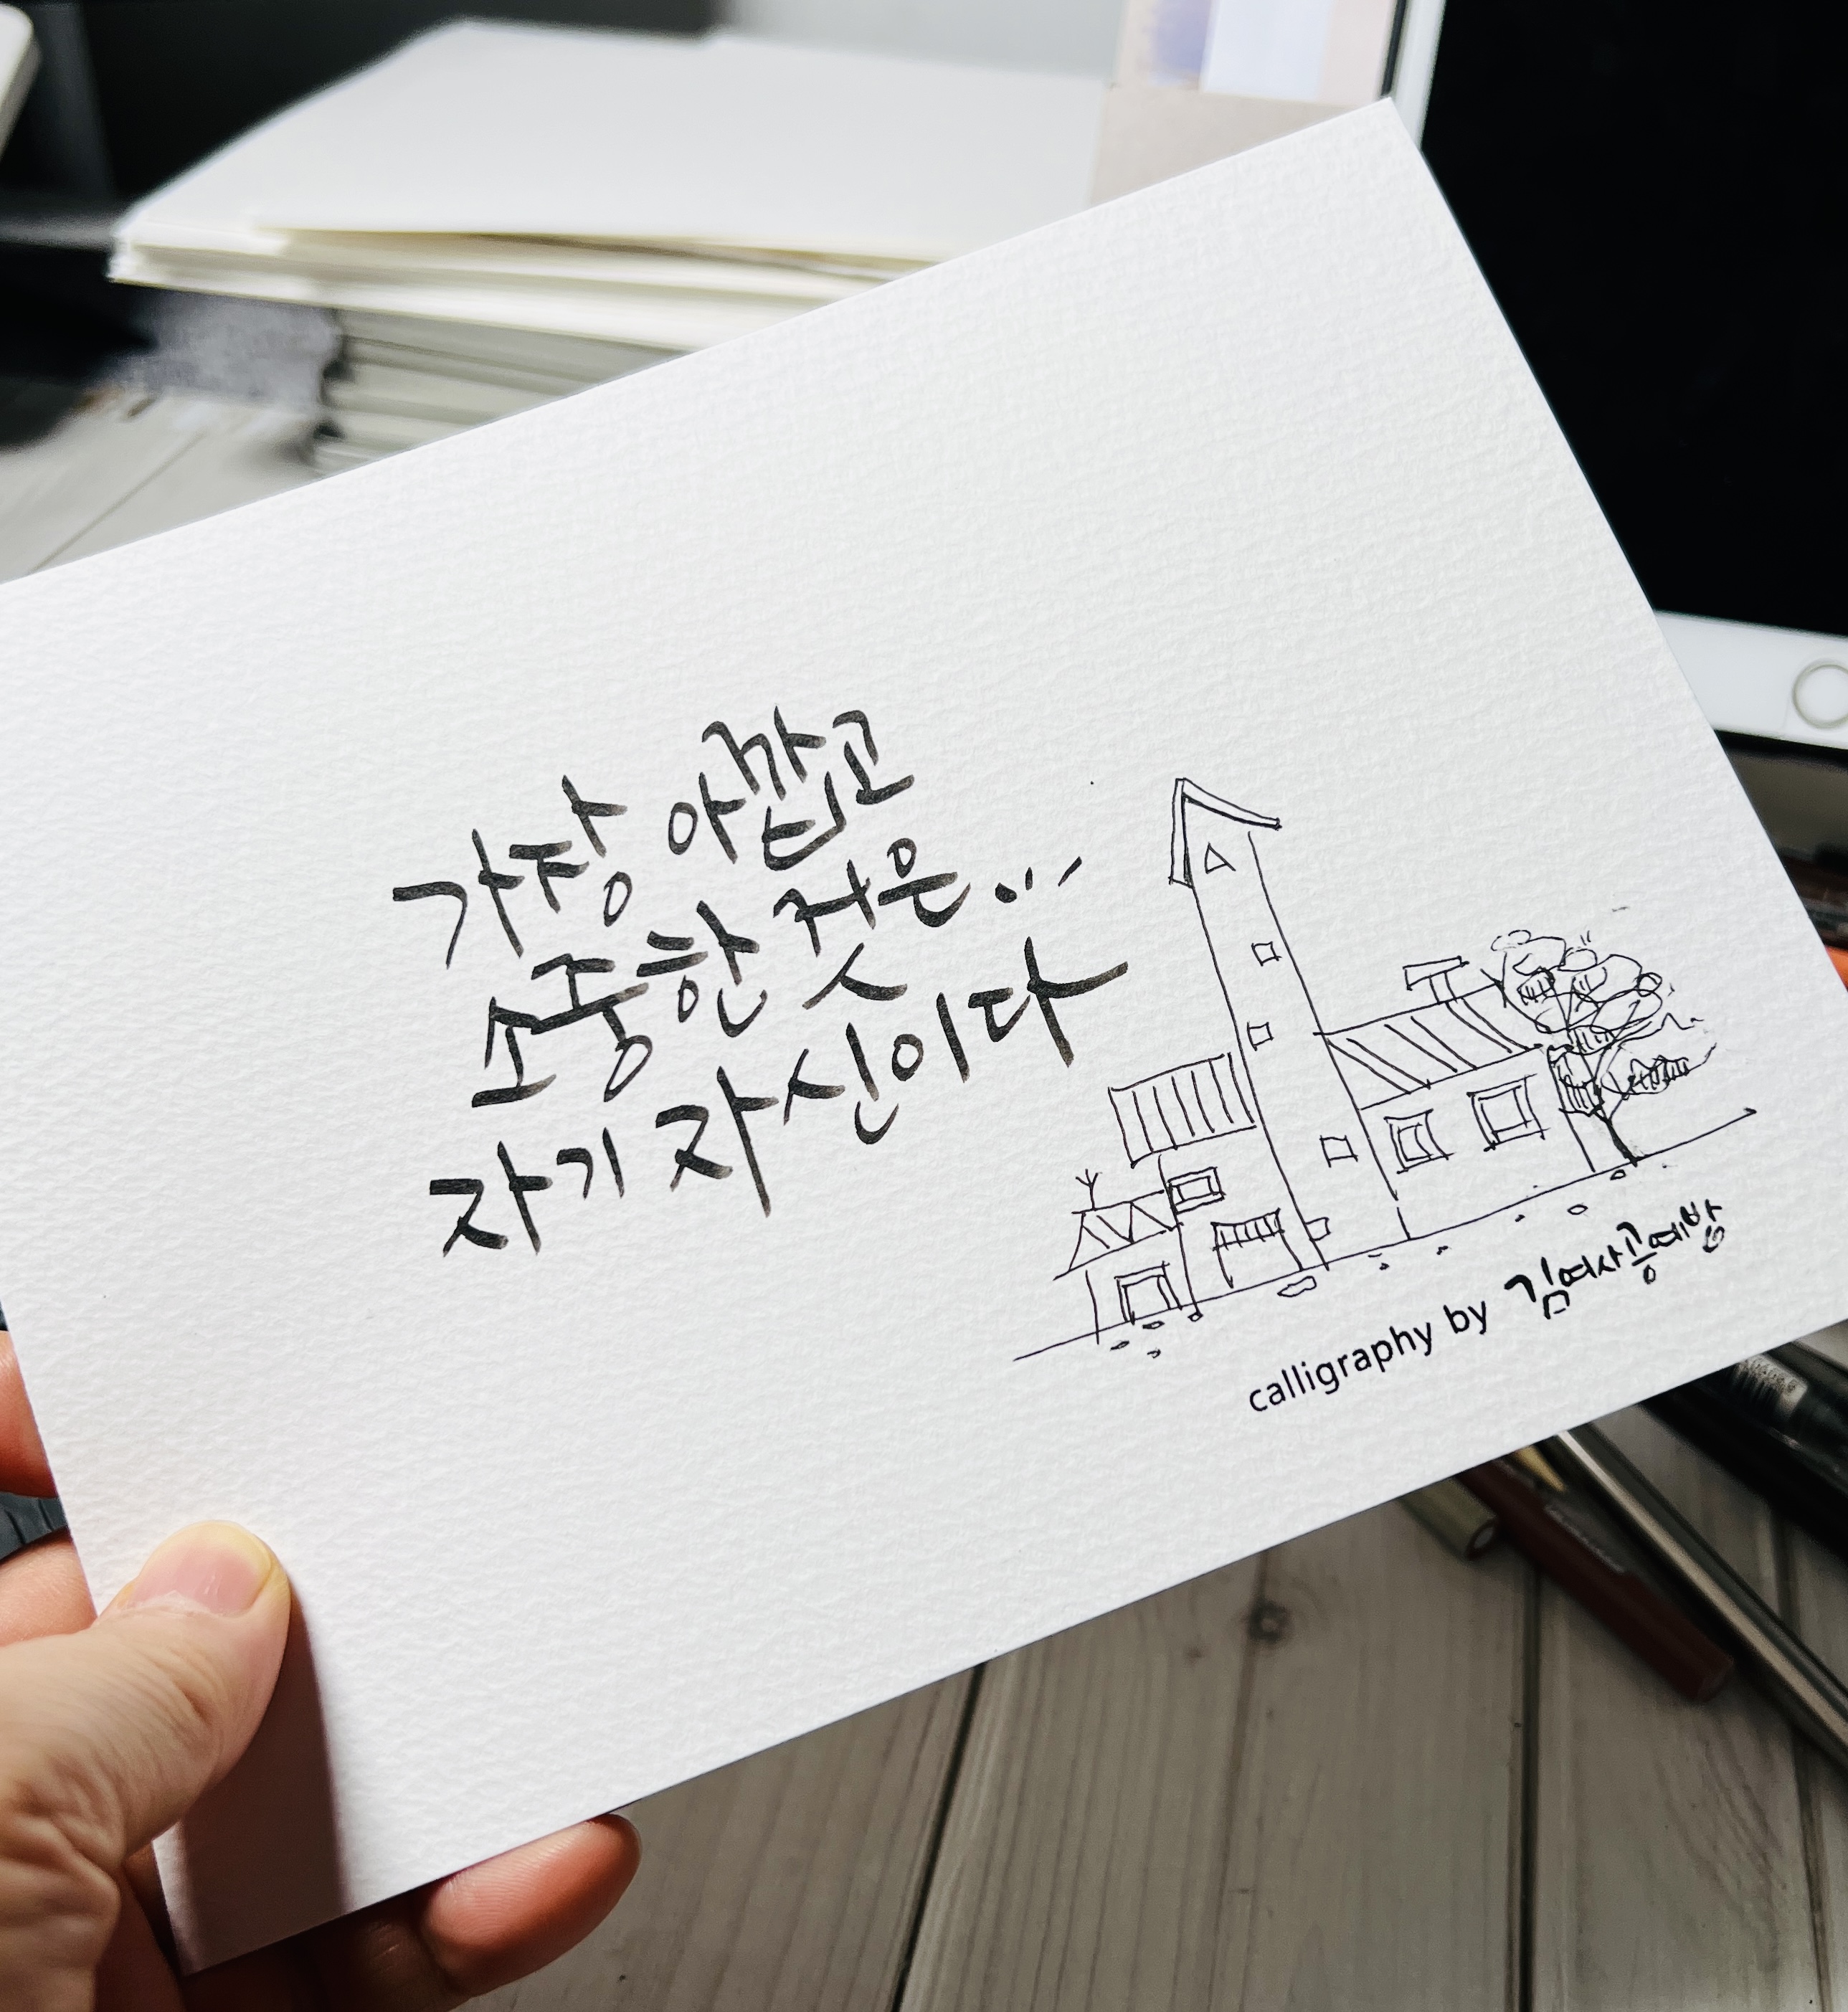 가장 아깝고
소중한 것은...
자기 자신이다
calligraphy by 김여사공예방